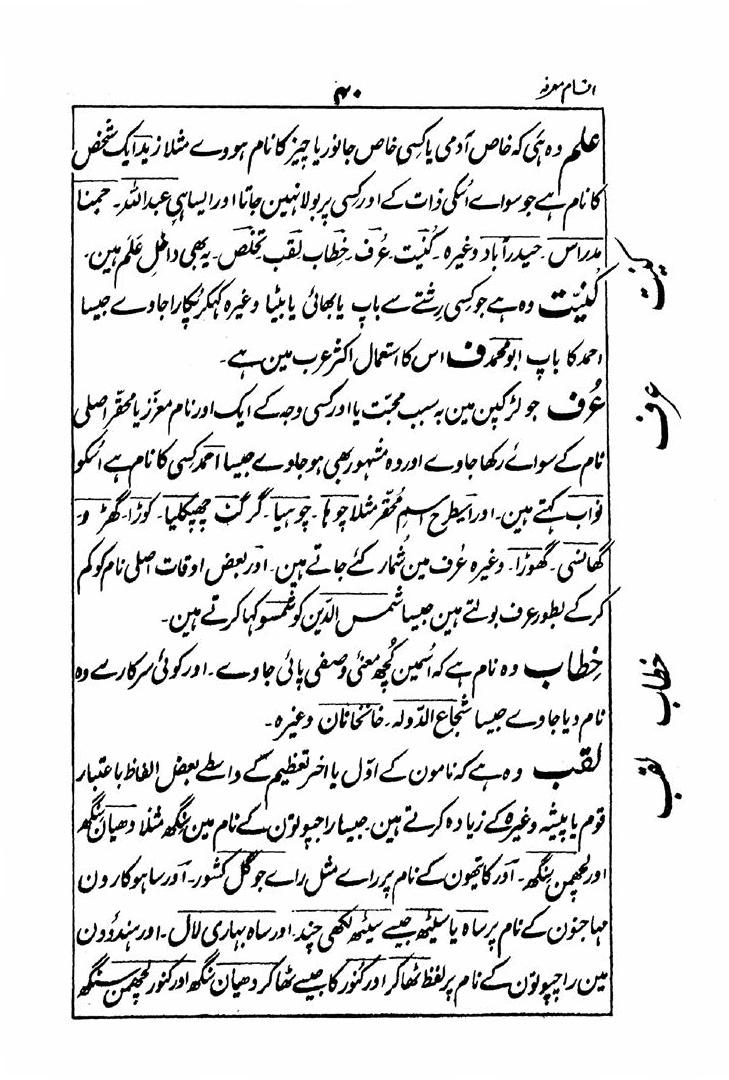 اقسام معرفہ
۴۰
علم وہ ہی کہ خاص آدمی یا کسی خاص جانور یا چیز کا نام ہووے مثلا زید ایک شخص
کا نام ہے جو سواے اُسکی ذات کے اور کسی پر بولا نہین جاتا اور ایسا ہی عبد اللہ۔ جمنا
مدراس۔ حیدرآباد وغیرہ۔ کُنیت۔ عُرف۔ خِطاب لقب تخلص۔ یہ بھی داخل عَلَم ہین۔
کُنیت
کُنیّت وہ ہے جو کسی رشتے سے باپ یا بھائی یا بیٹا وغیرہ کہکر پکارا جاوے جیسا
احمد کا باپ ابو محمد ف اس کا استعمال اکثر عرب مین ہے۔
عرف
عُرف جو لڑکپن مین بہ سبب محبّت یا اور کسی وجہ کے ایک اور نام معزّز یا محقّر اصلی
نام کے سوائے رکھا جاوے اور وہ مشہور بھی ہو جاوے جیسا احمد کسی کا نام ہے اُسکو
نواب کہتے ہین۔ اور اسیطرح اسم محقّر مثلا چوہا۔ چوہیا۔ گرگٹ چھپکلیا۔ کوڑا۔ گھڑو۔
گھانسی۔ گھوڑا۔ وغیرہ عُرف مین شُمار کئے جاتے ہین۔ اور بعض اوقات اصلی نام کو کم
کر کے بطور عرف بولتے ہین جیسا شمس الدّین کو شمسو کہا کرتے ہین۔
خطاب
خِطاب وہ نام ہے کہ اُسمین کُچھ معنئ وصفی پائی جاوے۔ اور کوئی سرکار سے وہ
نام دیا جاوے جیسا شجاع الدّولہ۔ خانخانان وغیرہ۔
لقب
لقب وہ ہے کہ نامون کے اوّل یا اخر تعظیم کے واسطے بعض الفاظ باعتبار
قوم یا پیشہ وغیرہ کے زیادہ کرتے ہین۔ جیسا راجپوتون کے نام مین سنگھ مثلا دھیان سنگھ
اور لچھمن سنگھ۔ اور کایتھون کے نام پر راے مثل راے جوگل کشور۔ اور ساہوکارون
مہاجنون کے نام پر ساہ یا سیٹھ جیسے سیٹھ لکھی چند اور ساہ بہاری لال۔ اور ہندؤون
مین راجپوتون کے نام پر لفظ ٹھاکر اور کنور کا جیسے ٹھاکر دھیان سنگھ اور کنور لچھمن سنگھ